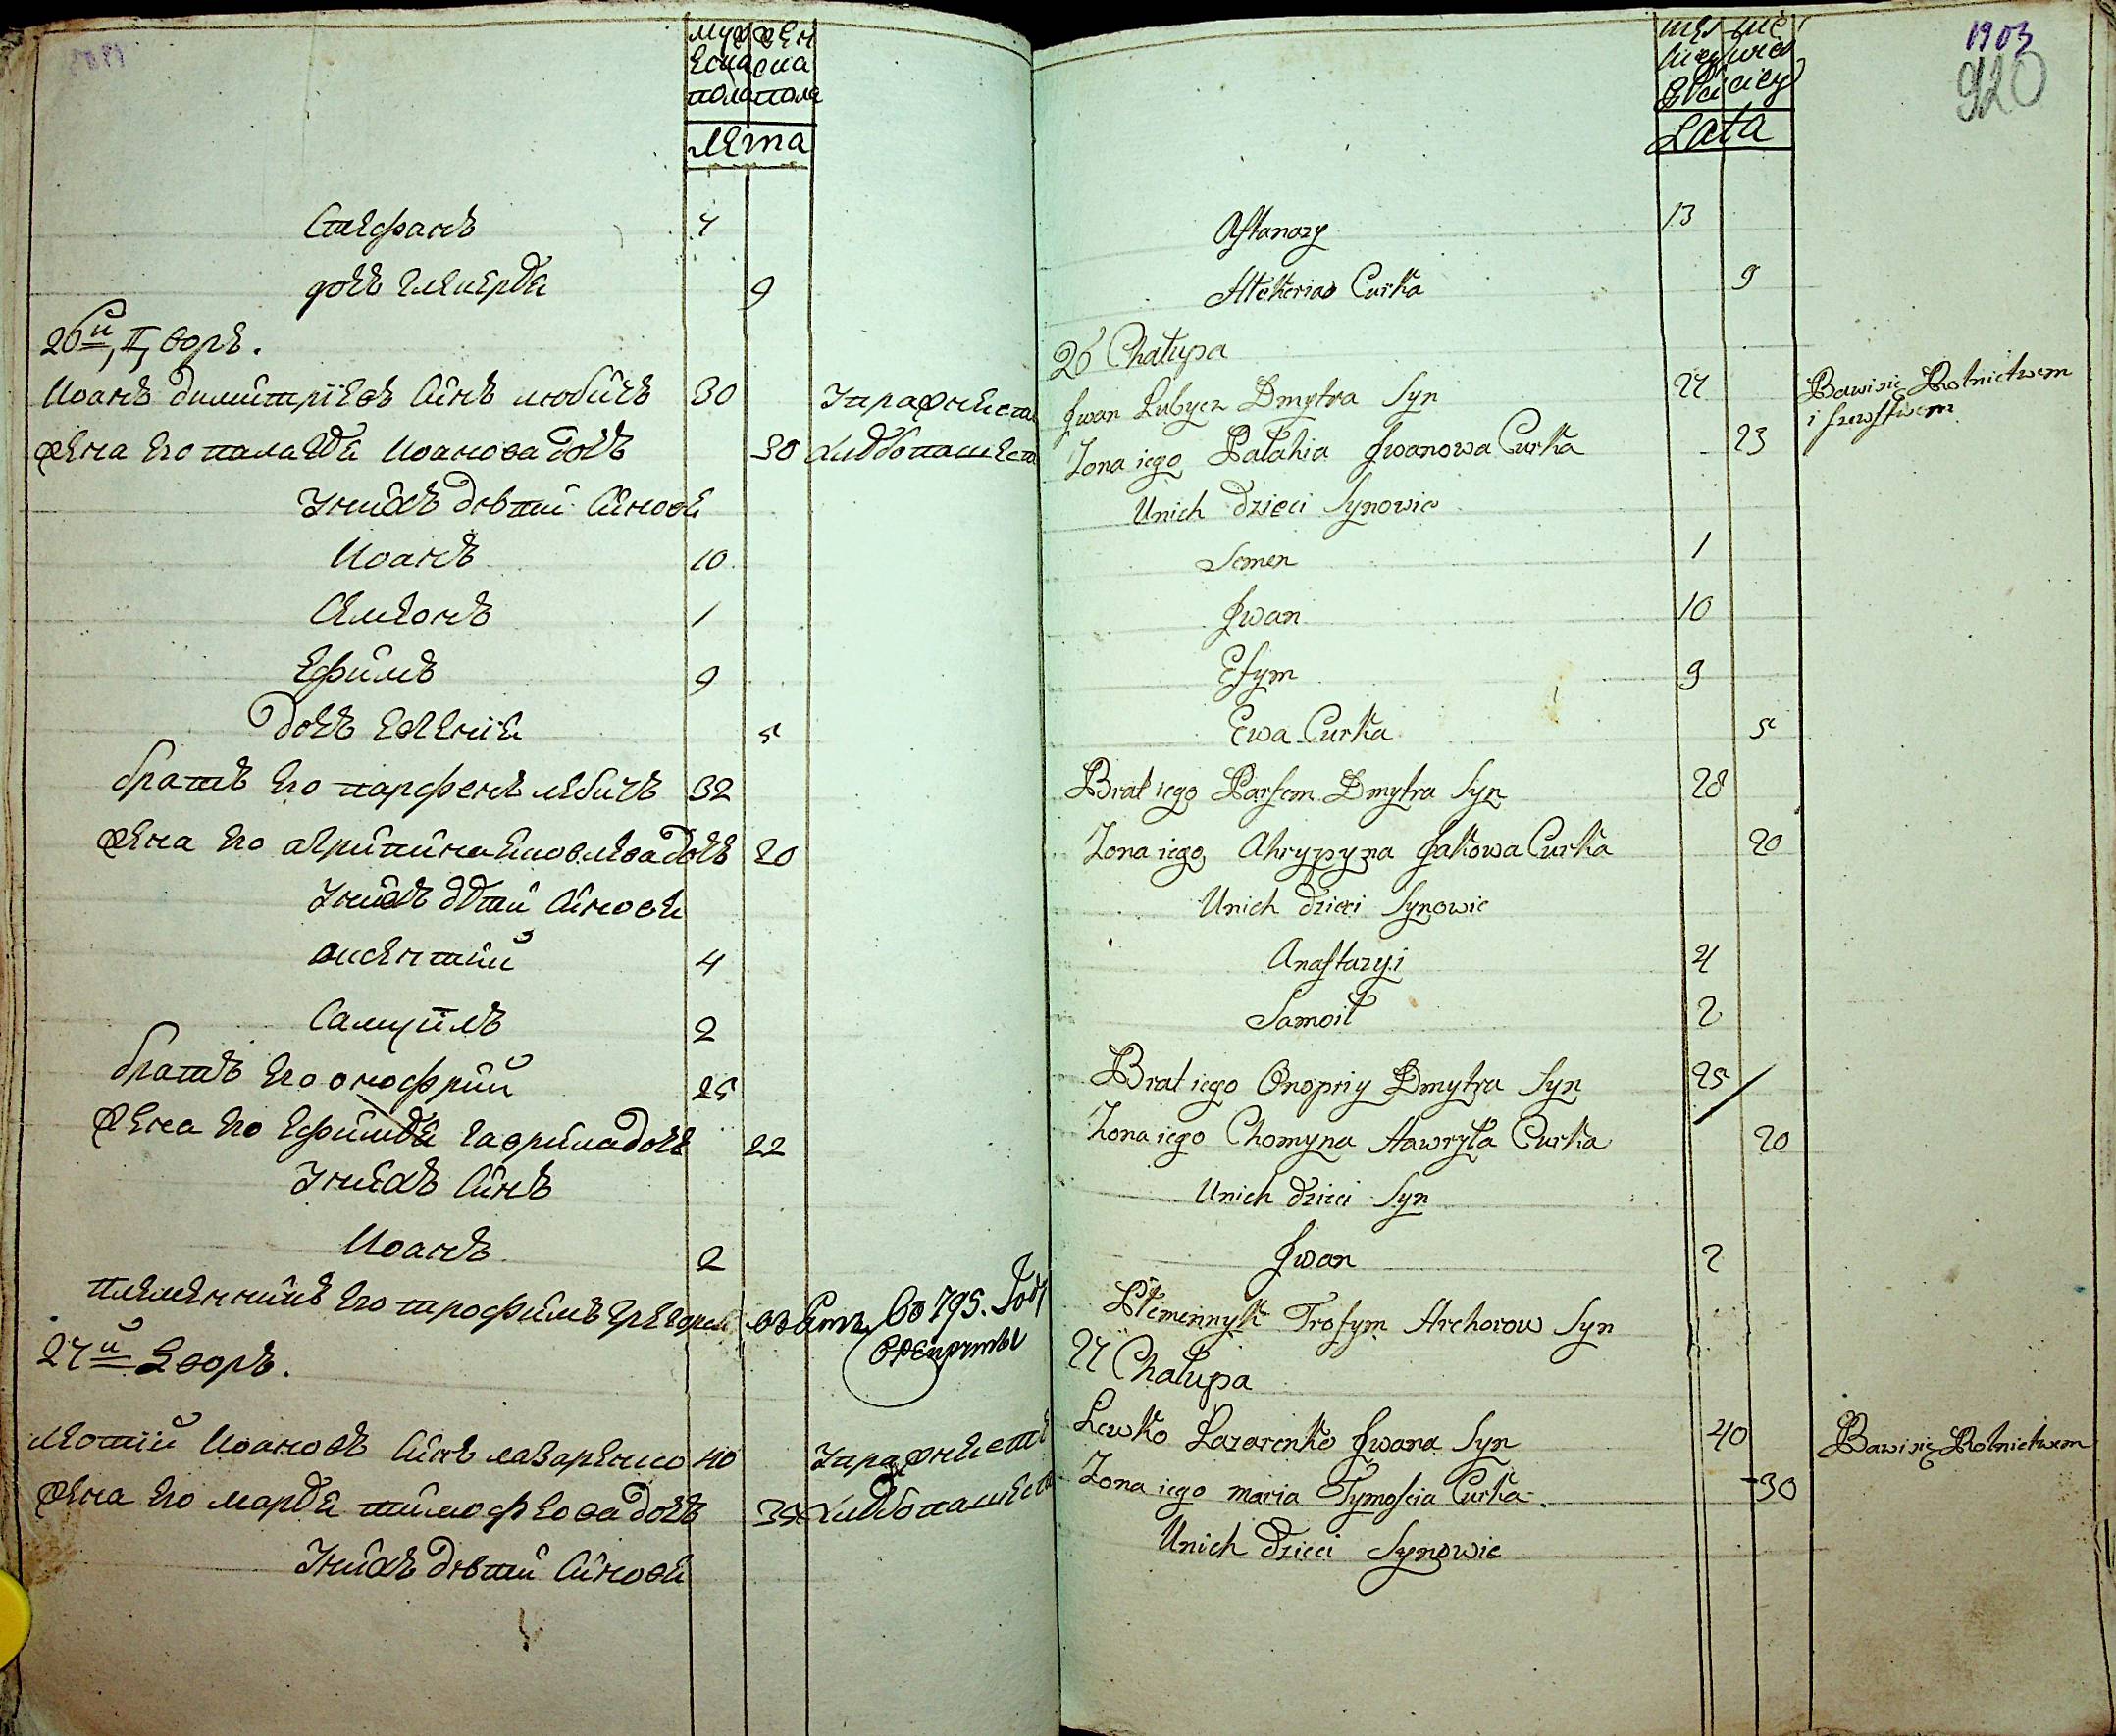 муж жен
еска ска
пола пола
лета
Стефанъ 7
дочь гликерия 9
26й, II, воръ.
Иоанъ димитріевъ синъ любичъ 30 Упражнѣ
жена его палагия Иоанова дочъ 30 хлѣбопашест
У нихъ дѣти синови
Иоанъ 10
Симеонъ 1
Ефимъ 9
дочъ евгенія 5
братъ его парфенъ любичъ 32
жена его агрипина яковлева дочь 20
У нихъ дѣти синови
4
Самуилъ 2
братъ его онофрий 25
жена его гаврила дочь 22
У нихъ синъ
Иоанъ 2
племенникъ его трофимъ Григоров во 795. Году
27й Дворъ.
Иоановъ синъ лазаренко 40
жена его мария тимофѣева дочъ 35 хлѣбопашес
У нихъ дѣти синови
1903
920
Lata
Aftanazy 13
Hlekeria Curka 9
26 Chałupa
Jwan Lubycz Dmytra Syn 27 Bawi się Rolnictwem
i szewstwem
Zona iego Pałahia Jwanowa Curka 23
Unich dzieci Synowie
Semen 1
Jwan 10
Efym 9
Ewa Curka 5
Brat iego Parfem Dmytra Syn 28
Zona iego Ahrypyna Jakowa Curka 20
Unich dzieci Synowie
Anaftazyi 4
Samoił 2
Brat iego Onopriy Dmytra Syn 25
Zona iego Chomyna Hawryła Curka 20
Unich dzieci Syn
Jwan 2
Płemennyk Trofym Hrehorow Syn
27 Chałupa
Lewko Lazarenko Jwana Syn 40 Bawi się Rolnictwem
Zona iego maria Tymofeia Curka 30
Unich dzieci Synowie